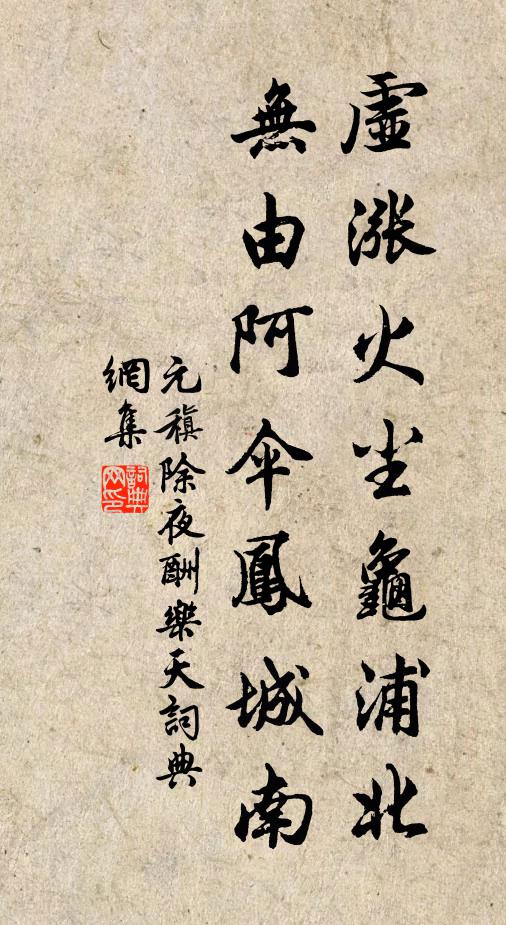 虛漲火尘龜浦北
無由阿伞鳳城南
元稹除夜酬樂天詞典
網集
詞典
网印